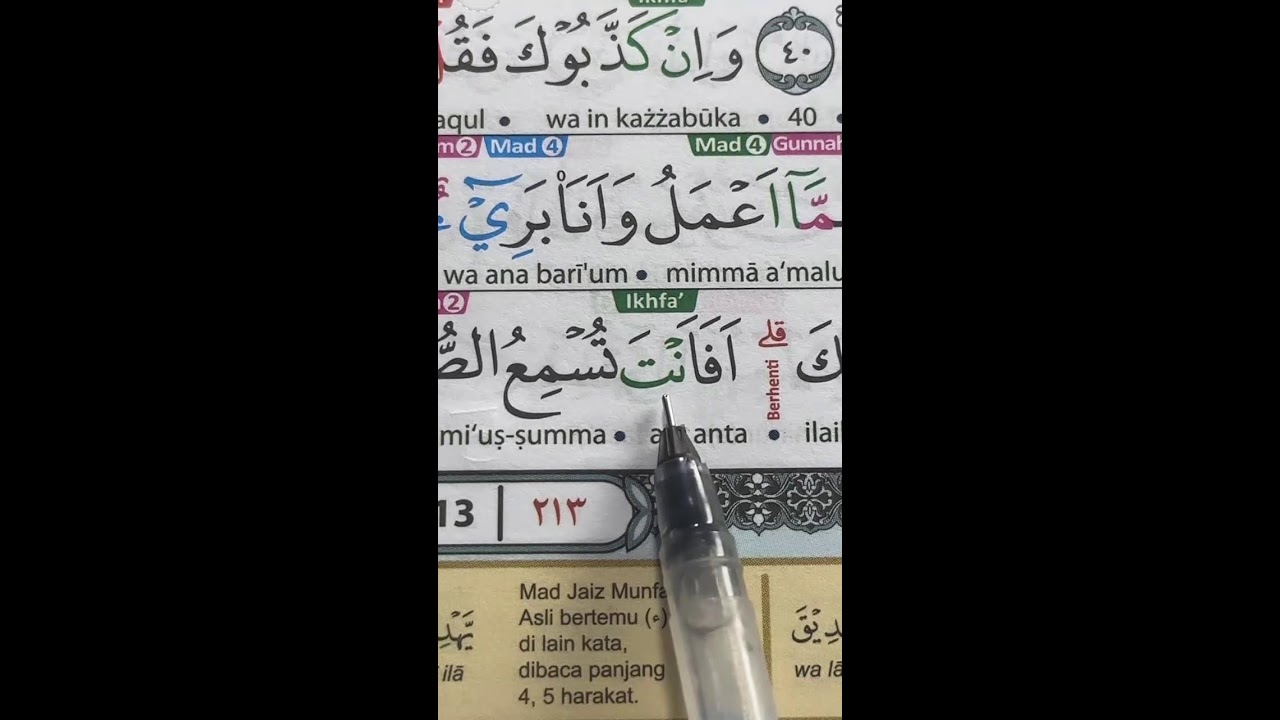 Ikhfa'
وَاِنْ كَذَّبُوْكَ فَقُلْ ٤٠
aqul • wa in każżabūka • 40 •
m2 Mad 4 Mad 4 Gunnah
مَّآ اَعْمَلُ وَاَنَا۠ بَرِيْۤ
wa ana barī'um • mimmā a‘malu
2 Ikhfa’
كَ ۗ اَفَاَنْتَ تُسْمِعُ الصُّ
Berhenti
mi‘uṣ-ṣumma • anta • ilai
13 | ٢١٣
Mad Jaiz Munfa
Asli bertemu (ء)
di lain kata,
dibaca panjang
4, 5 harakat.
يَّهْدِ
ilā
دِيْقَ
wa lā